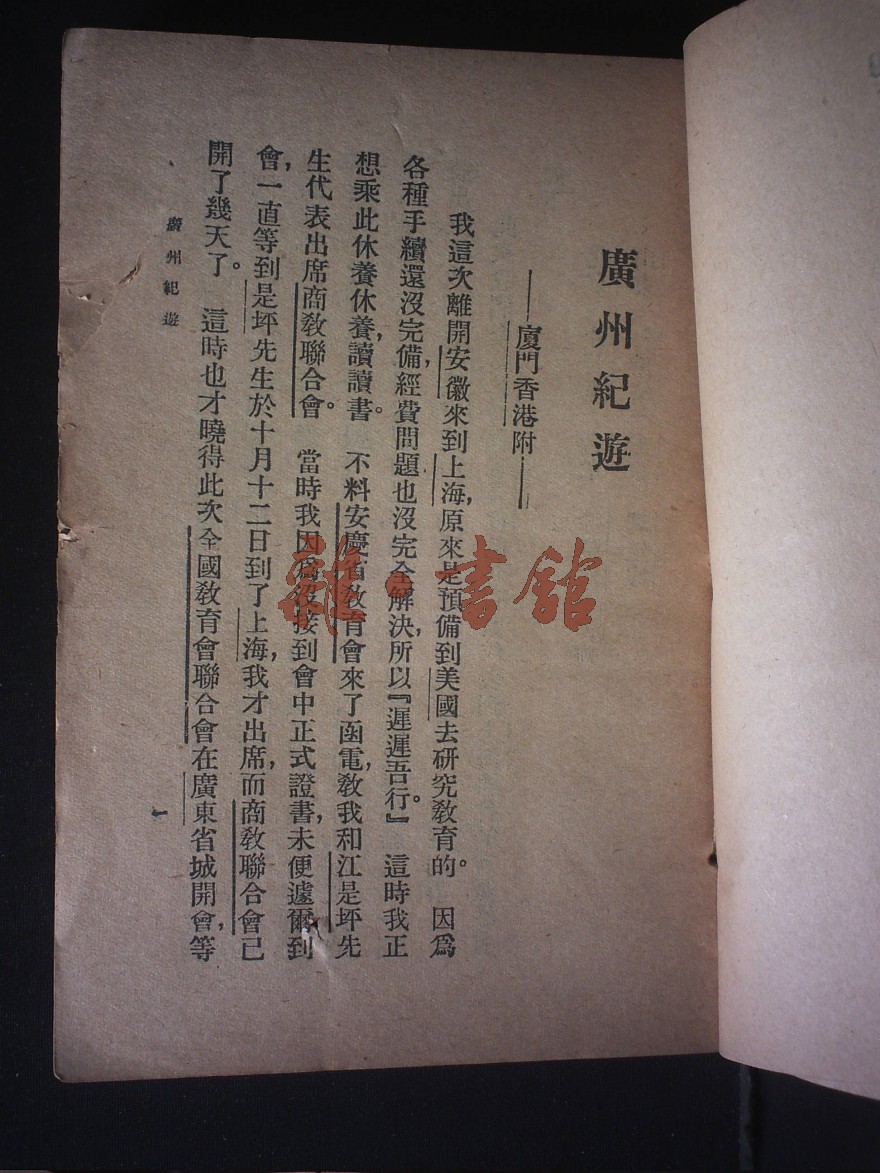 廣州紀遊
——廈門香港附——
我這次離開安徽來到上海，原來是預備到美國去研究敎育的。　因爲
各種手續還沒完備，經費問題也沒完全解決，所以『遲遲吾行。』　這時我正
想乘此休養休養，讀讀書。　不料安慶省敎育會來了函電，敎我和江是坪先
生代表出席商敎聯合會。　當時我因爲沒接到會中正式證書，未便遽爾到
會，一直等到是坪先生於十月十二日到了上海，我才出席，而商敎聯合會已
開了幾天了。　這時也才曉得此次全國敎育會聯合會在廣東省城開會，等
廣州紀遊
一
雜·書館